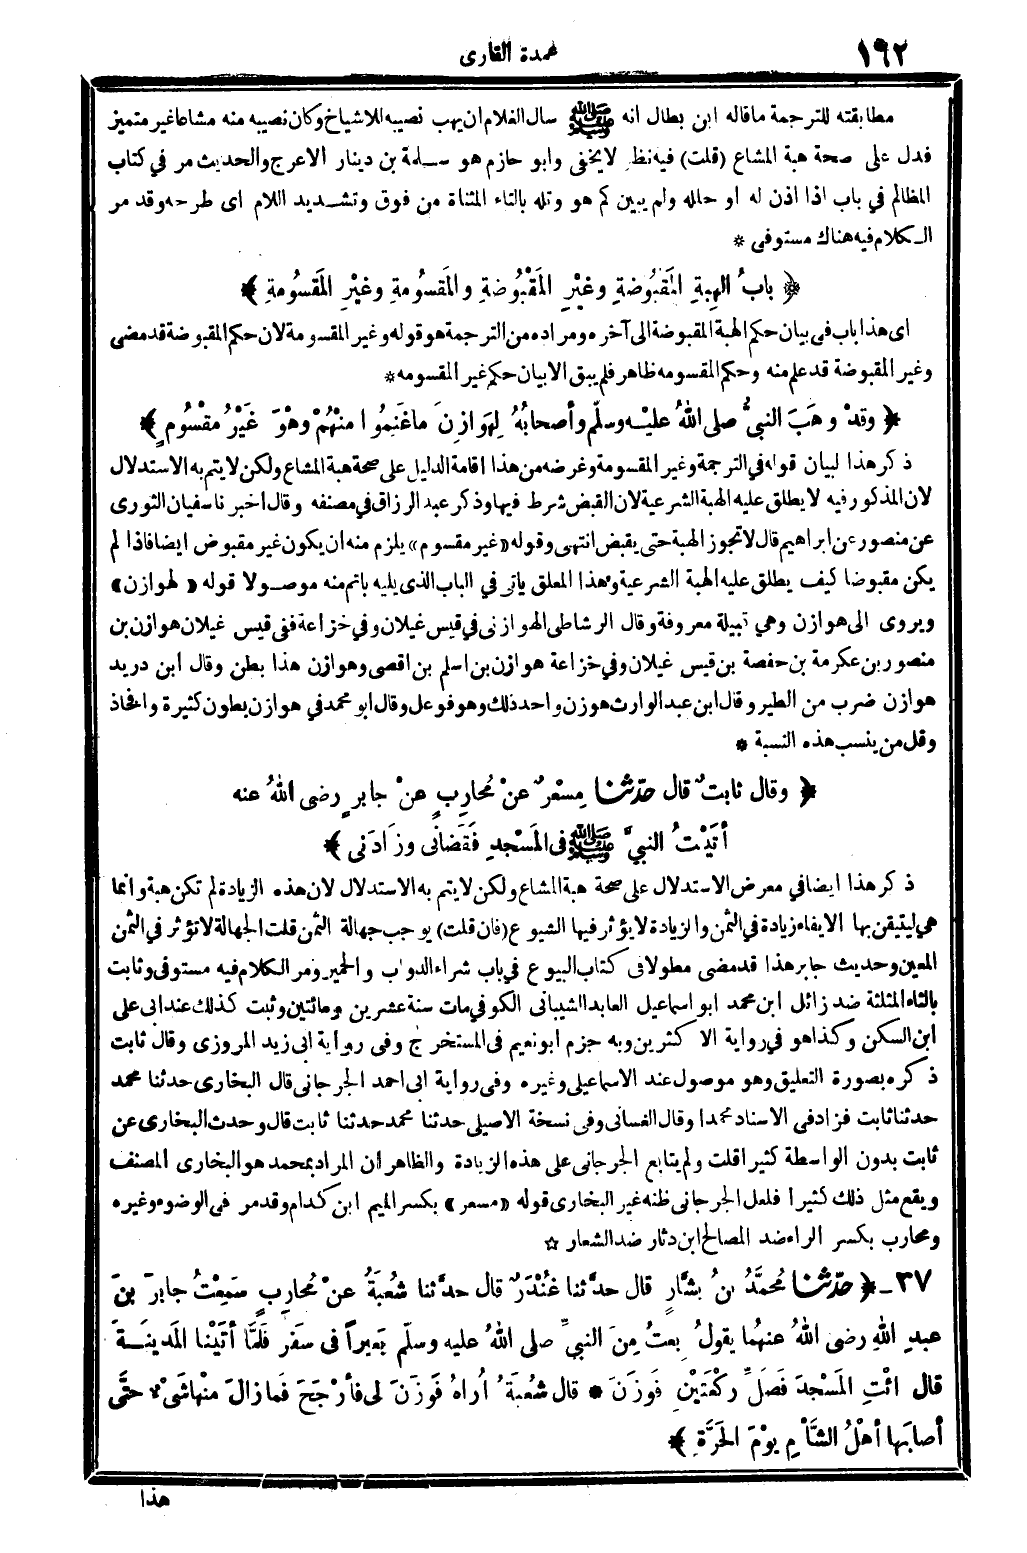 ١٦٢
عمدة القارى
مطابقته للترجمة ماقاله ابن بطال انه ﷺ سال الغلام ان يهب نصيبه للاشياخ وكان نصيبه منه مشاعا غير متميز
فدل على صحة هبة المشاع (قلت) فيه نظر لايخفى وابو حازم هو سلمة بن دينار الاعرج والحديث مر في كتاب
المظالم في باب اذا اذن له او حالله ولم يبين كم هو وتله بالتاء المثناة من فوق وتشديد اللام اى طرحه وقد مر
الكلام فيه هناك مستوفى *
﴿ بابُ الهِبةِ المَقْبُوضةِ وغيْرِ المَقْبُوضةِ والمَقسُومةِ وغيْرِ المَقْسُومةِ ﴾
اى هذا باب فى بيان حكم الهبة المقبوضة الى آخره ومراده من الترجمة هو قوله وغير المقسومة لان حكم المقبوضة قد مضى
وغير المقبوضة قد علم منه وحكم المقسومه ظاهر فلم يبق الا بيان حكم غير المقسومه *
﴿ وقدْ وهَبَ النبيُّ صلى اللهُ عليْه وسلّم وأصحابُهُ لِهوازِنَ ماغَنِمُوا منْهُمْ وهْوَ غَيْرُ مقْسُومٍ ﴾
ذكر هذا لبيان قوله في الترجمة وغير المقسومة وغرضه من هذا اقامة الدليل على صحة هبة المشاع ولكن لايتم به الاستدلال
لان المذكور فيه لا يطلق عليه الهبة الشرعية لان القبض شرط فيها وذكر عبد الرزاق في مصنفه وقال اخبرنا سفيان الثورى
عن منصور عن ابراهيم قال لاتجوز الهبة حتى يقبض انتهى وقوله «غير مقسوم» يلزم منه ان يكون غير مقبوض ايضا فاذا لم
يكن مقبوضا كيف يطلق عليه الهبة الشرعية وهذا المعلق ياتى في الباب الذى يليه باتم منه موصولا قوله «لهوازن»
ويروى الى هوازن وهي قبيلة معروفة وقال الرشاطى الهوازنى في قيس غيلان وفي خزاعة ففى قيس غيلان هوازن بن
منصور بن عكرمة بن حفصة بن قيس غيلان وفي خزاعة هوازن بن اسلم بن اقصى وهوازن هذا بطن وقال ابن دريد
هوازن ضرب من الطير وقال ابن عبد الوارث هوزن واحد ذلك وهو فوعل وقال ابو محمد في هوازن بطون كثيرة وافخاذ
وقل من ينسب هذه النسبة *
﴿ وقال ثابتٌ قال حدّثنا مِسْعرٌ عنْ مُحاربٍ عنْ جابرٍ رضى اللهُ عنه
أتَيْتُ النبيَّ ﷺ فى المَسْجدِ فَقَضانى وزَادَنى ﴾
ذكر هذا ايضا في معرض الاستدلال على صحة هبة المشاع ولكن لايتم به الاستدلال لان هذه الزيادة لم تكن هبة وانما
هي ليتيقن بها الايفاء زيادة في الثمن والزيادة لايؤثر فيها الشيوع (فان قلت) يوجب جهالة الثمن قلت الجهالة لاتؤثر في الثمن
المعين وحديث جابر هذا قد مضى مطولا فى كتاب البيوع في باب شراء الدواب والحمير ومر الكلام فيه مستوفى وثابت
بالثاء المثلثة ضد زائل ابن محمد ابو اسماعيل العابد الشيبانى الكوفي مات سنة عشرين ومائتين وثبت كذلك عند ابى على
ابن السكن وكذا هو في رواية الاكثرين وبه جزم ابو نعيم فى المستخرج وفى رواية ابى زيد المروزى وقال ثابت
ذكره بصورة التعليق وهو موصول عند الاسماعيلى وغيره وفى رواية ابى احمد الجرجانى قال البخارى حدثنا محمد
حدثنا ثابت فزاد فى الاسناد محمدا وقال الغسانى وفى نسخة الاصيلى حدثنا محمد حدثنا ثابت قال وحدث البخارى عن
ثابت بدون الواسطة كثيرا قلت ولم يتابع الجرجانى على هذه الزيادة والظاهر ان المراد بمحمد هو البخارى المصنف
ويقع مثل ذلك كثيرا فلعل الجرجانى ظنه غير البخارى قوله «مسعر» بكسر الميم ابن كدام وقد مر فى الوضوء وغيره
ومحارب بكسر الراء ضد المصالح ابن دثار ضد الشعار ☆
٣٧ ـ ﴿ حدّثنا مُحمَّدُ بنُ بشَّارٍ قال حدَّثنا غُنْدَرٌ قال حدَّثنا شُعبَةُ عنْ مُحاربٍ سَمِعْتُ جابرَ بنَ
عبدِ اللهِ رضى اللهُ عنهُما يقولُ بعتُ مِنَ النبيِّ صلى اللهُ عليه وسلّم بَعيراً فى سفَرٍ فلمّا أتَيْنا المَدينَةَ
قال ائْتِ المَسْجدَ فصَلِّ ركْعَتَيْنِ فَوزَنَ * قال شُعْبَةُ أُراهُ فوَزَنَ لى فأرْجَحَ فَما زالَ منْها شىْءٌ حتَّى
أصابَها أهْلُ الشَّأْمِ يوْمَ الحَرَّةِ ﴾
هذا